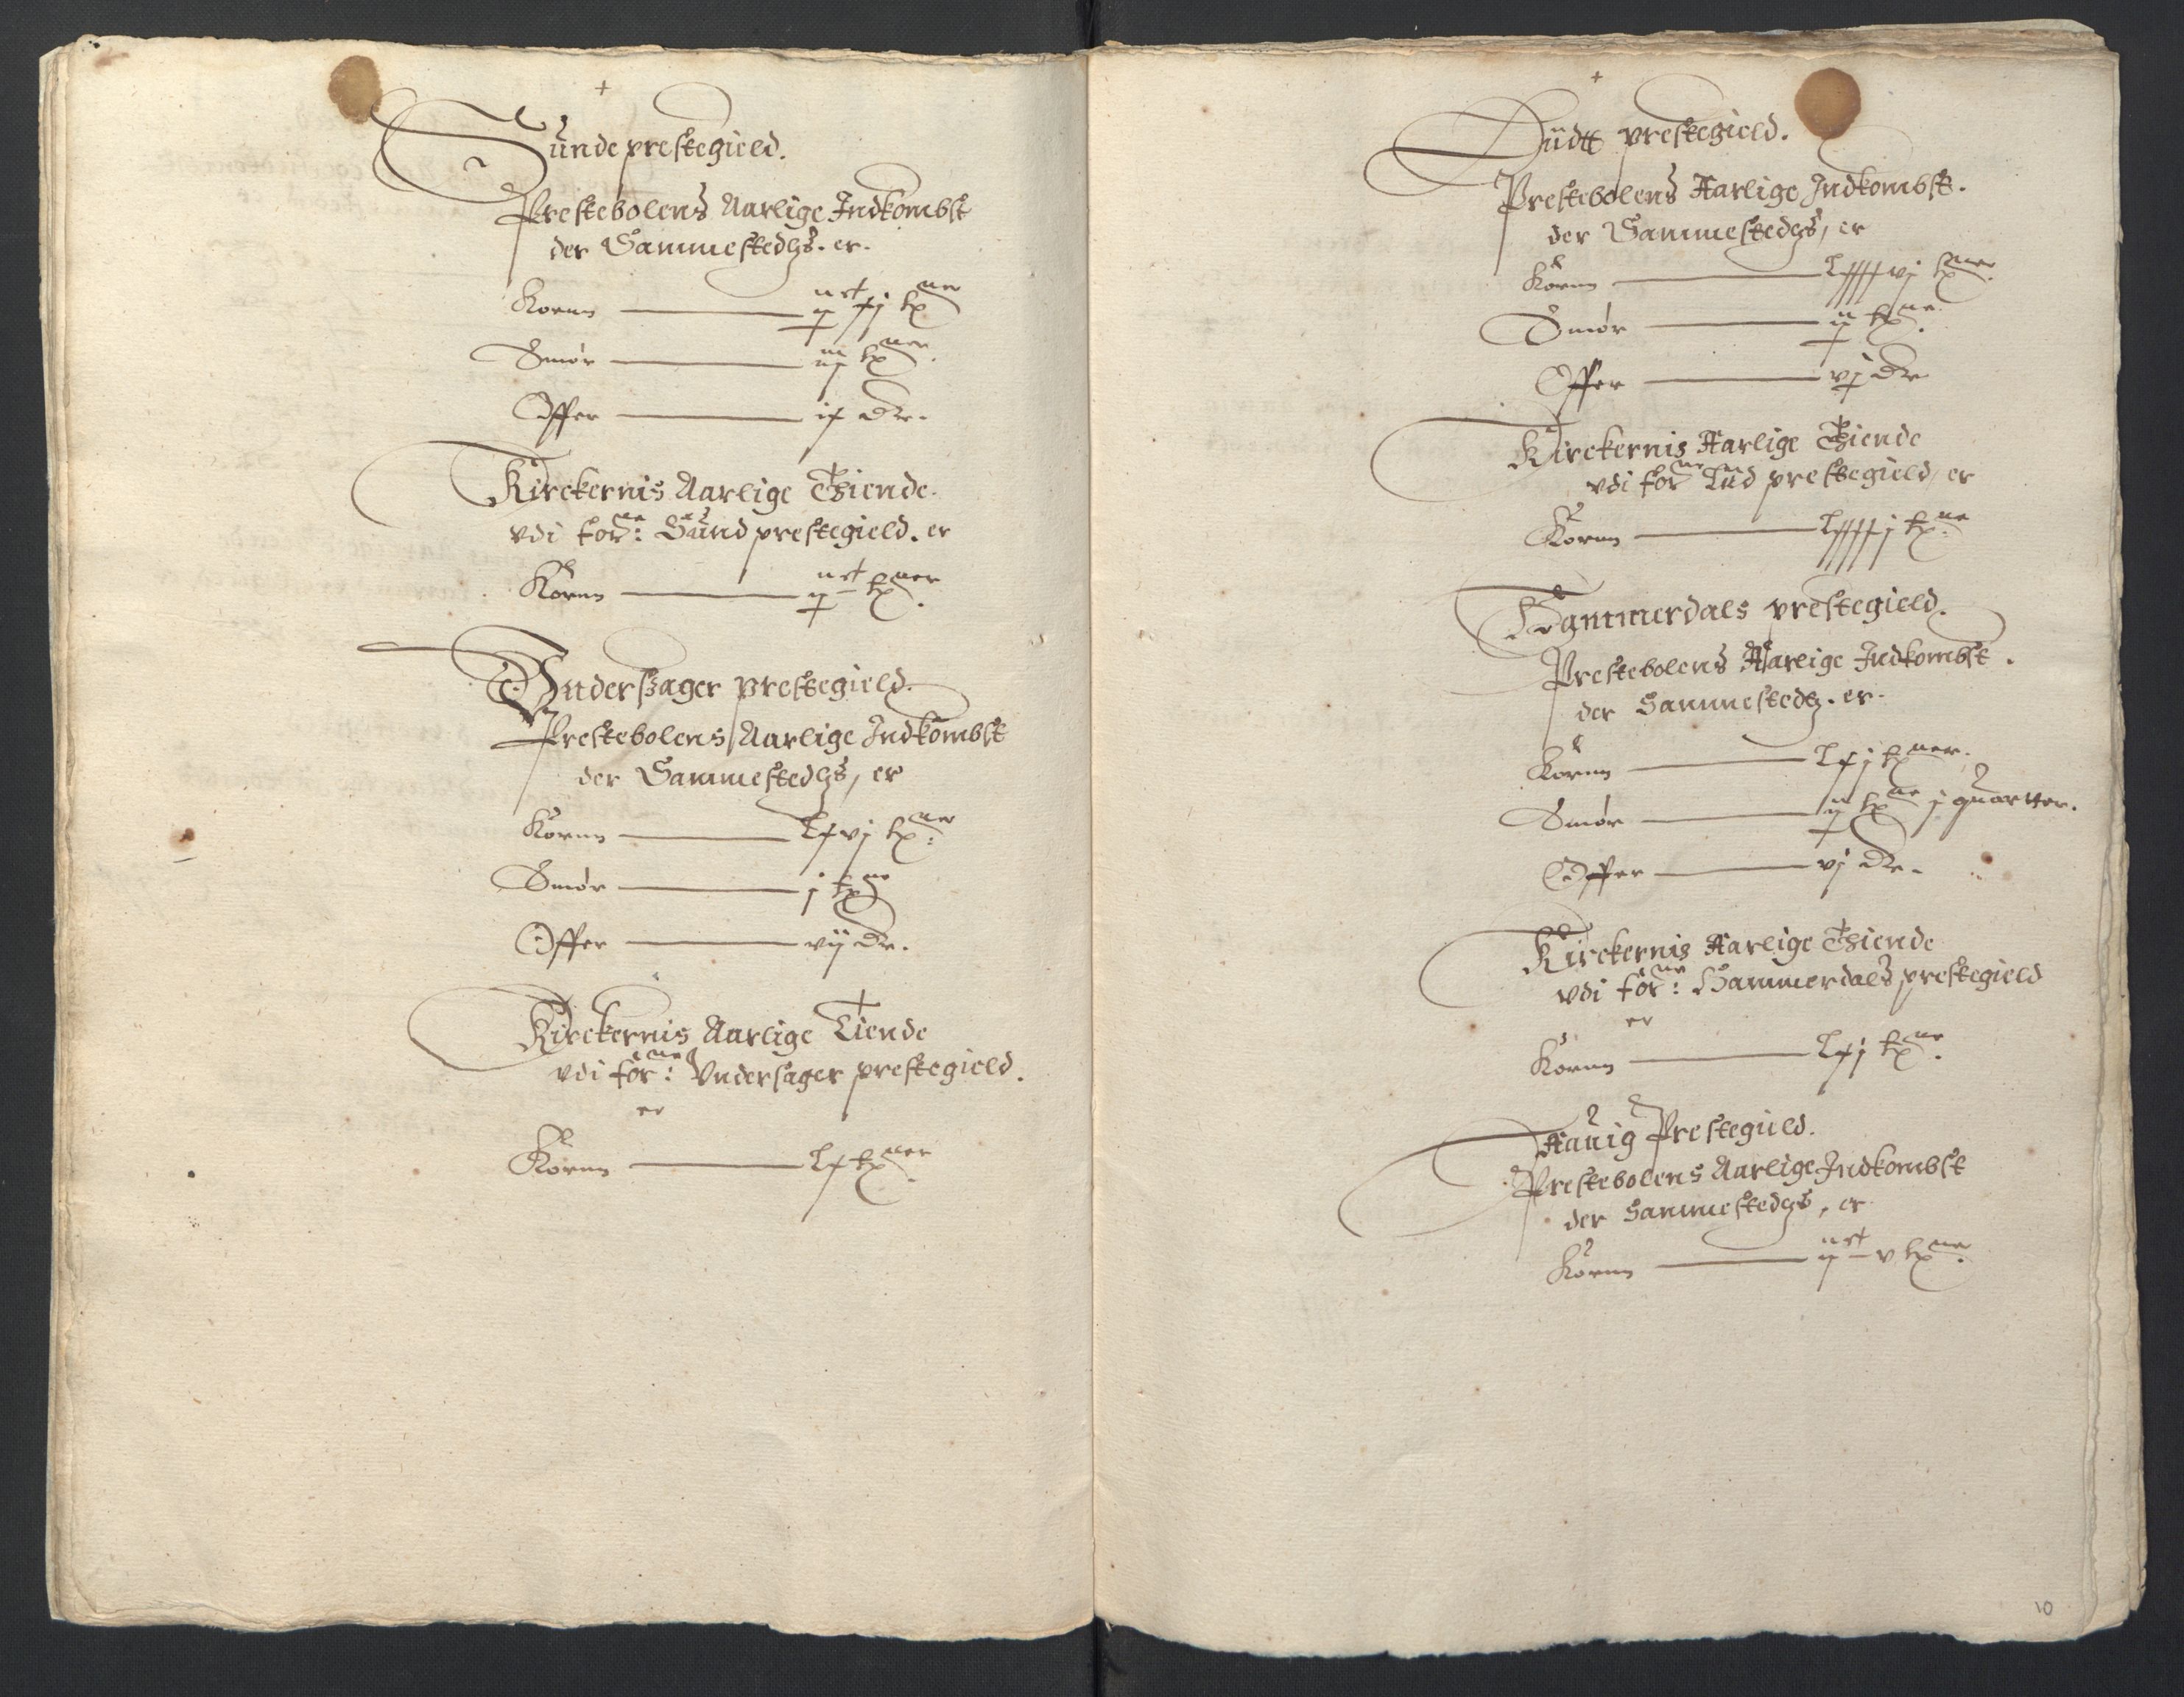 Sunde prestegield.
Prestebolens Aarlige Indkombst
der Sammestedtzs. er.
Kornn
Smør
Offer
Kirckernis Aarlige Thiende.
vdi forne: Sund prestegield. er
Kornn
Vnderszager prestegield.
Prestebolens Aarlige Indkombst
der Sammestedtzs, er
Kornn — Lxvj tner:
Smør — j tne
Offer — vij Dr.
Kirckernis Aarlige Tiende
vdi forne: Vndersager prestegield.
er
Kornn — Lx tner.
prestegield.
Prestebolens Aarlige Indkombst.
der Sammestedtzs, er
Kornn — Lxxxxvj tner.
Smør — ij tne.
Offer — vj Dr
Kirckernis Aarlige Thiende
vdi forne prestegield, er
Kornn — Lxxxxj tne
Hammerdals prestegield.
Prestebolens Aarlige Indkombst.
der Sammestedtz. er.
Kornn — Lxj tner.
Smør — ij tne j quarter.
Offer — vj Dr.
Kirckernis Aarlige Thiende
vdi forne: Hammerdals prestegield
er
Kornn — Lxj tne.
Prestegield.
Prestebolens Aarlige Indkombst
der Sammestedtzs, er
Kornn
10